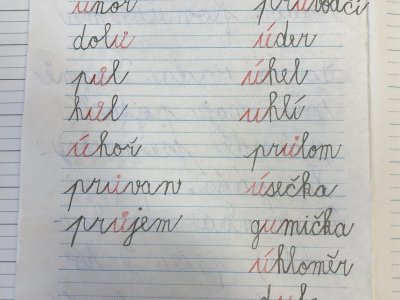 únor
dolů
půl
hůl
úhoř
průvan
průjem
průvodčí
úder
úhel
uhlí
průlom
úsečka
gumička
úhloměr